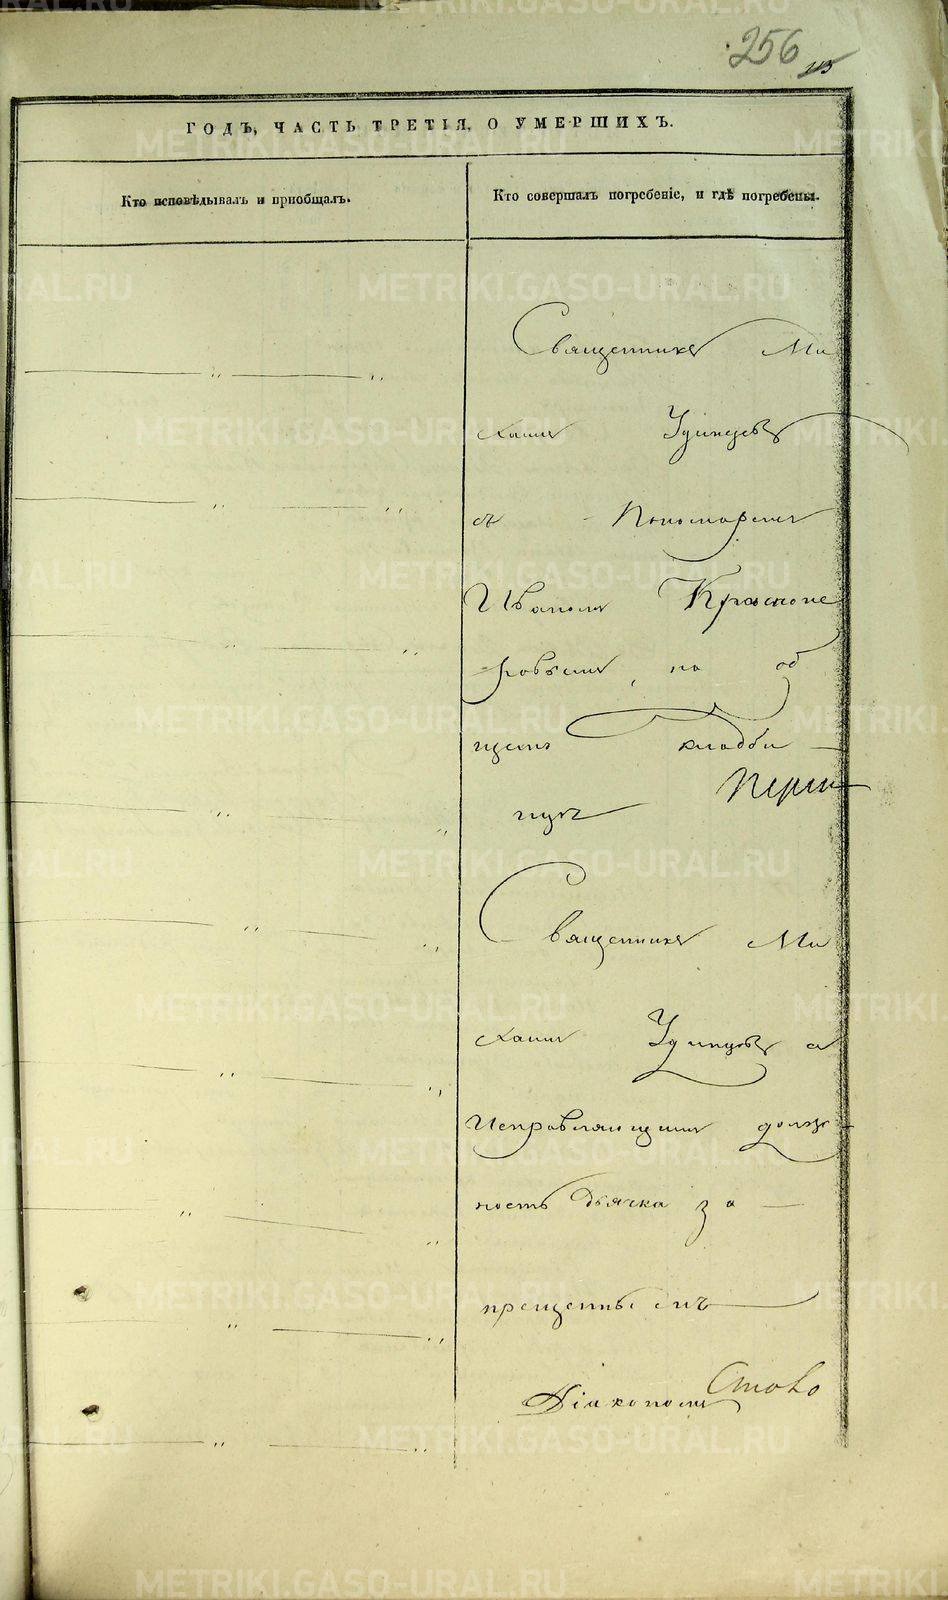 256
ГОДЪ, ЧАСТЬ ТРЕТІЯ, О УМЕРШИХЪ.
Кто исповѣдывалъ и пріобщалъ.
Кто совершалъ погребеніе, и гдѣ погребены.
Священникъ Ми
хаилъ Удинцевъ
съ Пономаремъ
Иваномъ Краснопе
ровымъ, на об
щемъ кладби
щѣ
Священникъ Ми
хаилъ Удинцовъ съ
Исправляющимъ долж
ность Дьячка за
прещеннымъ
Діакономъ
METRIKI.GASO-URAL.RU